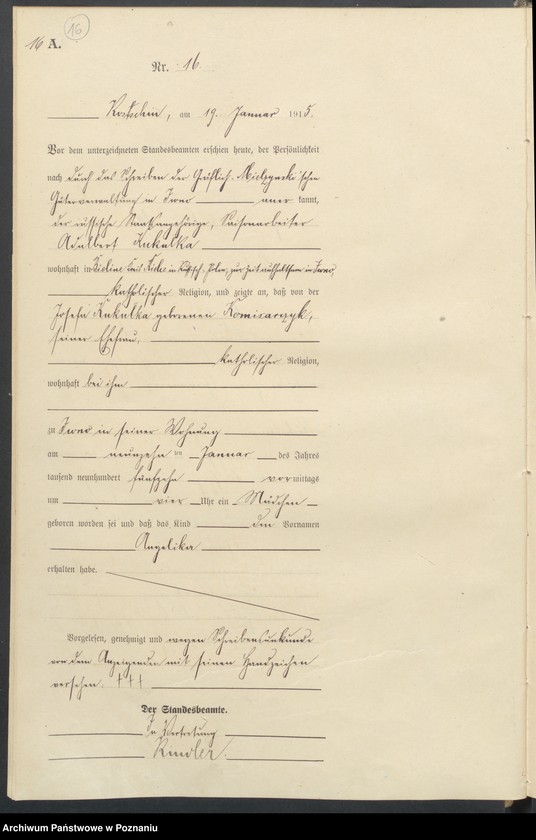 16
16 A.
Nr. 16.
Kostschin, am 19. Januar 1915.
Vor dem unterzeichneten Standesbeamten erschien heute, der Persönlichkeit
nach durch das Schreiben der Gräflich Mielzynski'schen
Güterverwaltung in Iwno anerkannt,
der russische Staatsangehörige, Saisonarbeiter
Adalbert Kukulka
wohnhaft in Kreis Kielce in Russisch-Polen, zur Zeit aufhaltsam in Iwno,
katholischer Religion, und zeigte an, daß von der
Josefa Kukulka geborenen Komisarczyk,
seiner Ehefrau,
katholischer Religion,
wohnhaft bei ihm
zu Iwno in seiner Wohnung
am neunzehnten Januar des Jahres
tausend neunhundert fünfzehn vormittags
um vier Uhr ein Mädchen
geboren worden sei und daß das Kind den Vornamen
Angelika
erhalten habe.
Vorgelesen, genehmigt und wegen Schreibensunkunde
von dem Anzeigenden mit seinen Handzeichen
versehen. +++
Der Standesbeamte.
In Vertretung
Archiwum Państwowe w Poznaniu